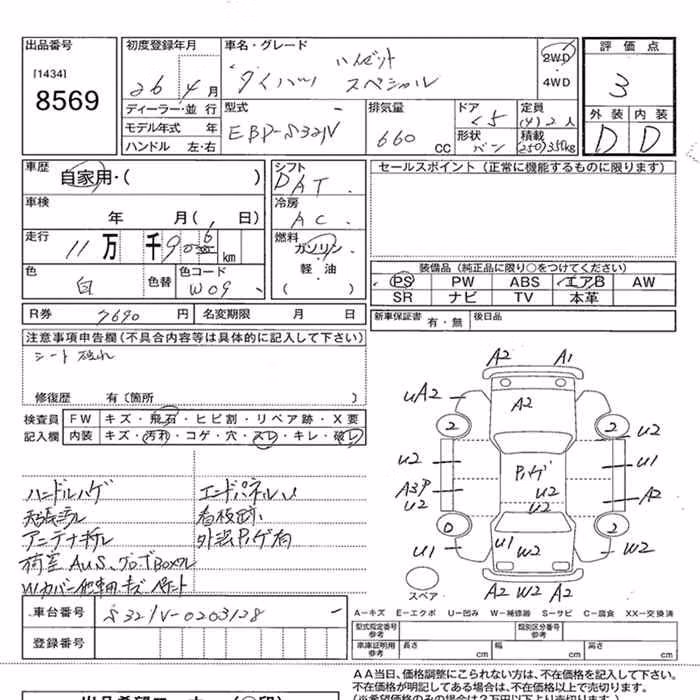 出品番号
[1434]
8569
初度登録年月
26 4月
車名・グレード
ハイゼット
ダイハツ スペシャル
2WD
4WD
評価点
3
外装 内装
D D
ディーラー・並行
モデル年式 年
ハンドル 左・右
型式
EBD-S321V
排気量
660 CC
ドア
5
形状
バン
定員
(4)2人
積載
(250)350kg
車歴
自家用・( )
車検
年 月( 日)
走行
11万 千9 km
色
白
色替
色コード
W09
シフト
DAT
冷房
AC
燃料
ガソリン・
軽・油
( )
セールスポイント(正常に機能するものに限ります)
装備品(純正品に限り○をつけてください)
PS PW ABS エアB AW
SR ナビ TV 本革
R券 7690円 名変期限 月 日
新車保証書 有・無 後日品
注意事項申告欄(不具合内容等は具体的に記入して下さい)
シート破れ
修復歴 有〔箇所 〕
検査員 FW キズ・飛石・ヒビ割・リペア跡・X要
記入欄 内装 キズ・汚れ・コゲ・穴・スレ・キレ・破レ
ハンドルハゲ
エンドパネルU
看板跡
外装Pハゲ有
車台番号 S321V-0203128
登録番号
A2 A1
uA2 A2
2 2
u2
u2 Pハゲ u1
A3P u2 A2
u2 u2
0 2
u1 u1 W2 W2
スペア
A2 W2 A2
A-キズ E-エクボ U-凹み W-補修跡 S-サビ C-腐食 XX-交換済
型式指定番号
参考
類別区分番号
参考
車庫証明用
参考
長さ cm 幅 cm 高さ cm
AA当日、価格調整にこられない方は、不在価格を記入して下さい。
不在価格が明記してある場合は、不在価格以上で売切ります。